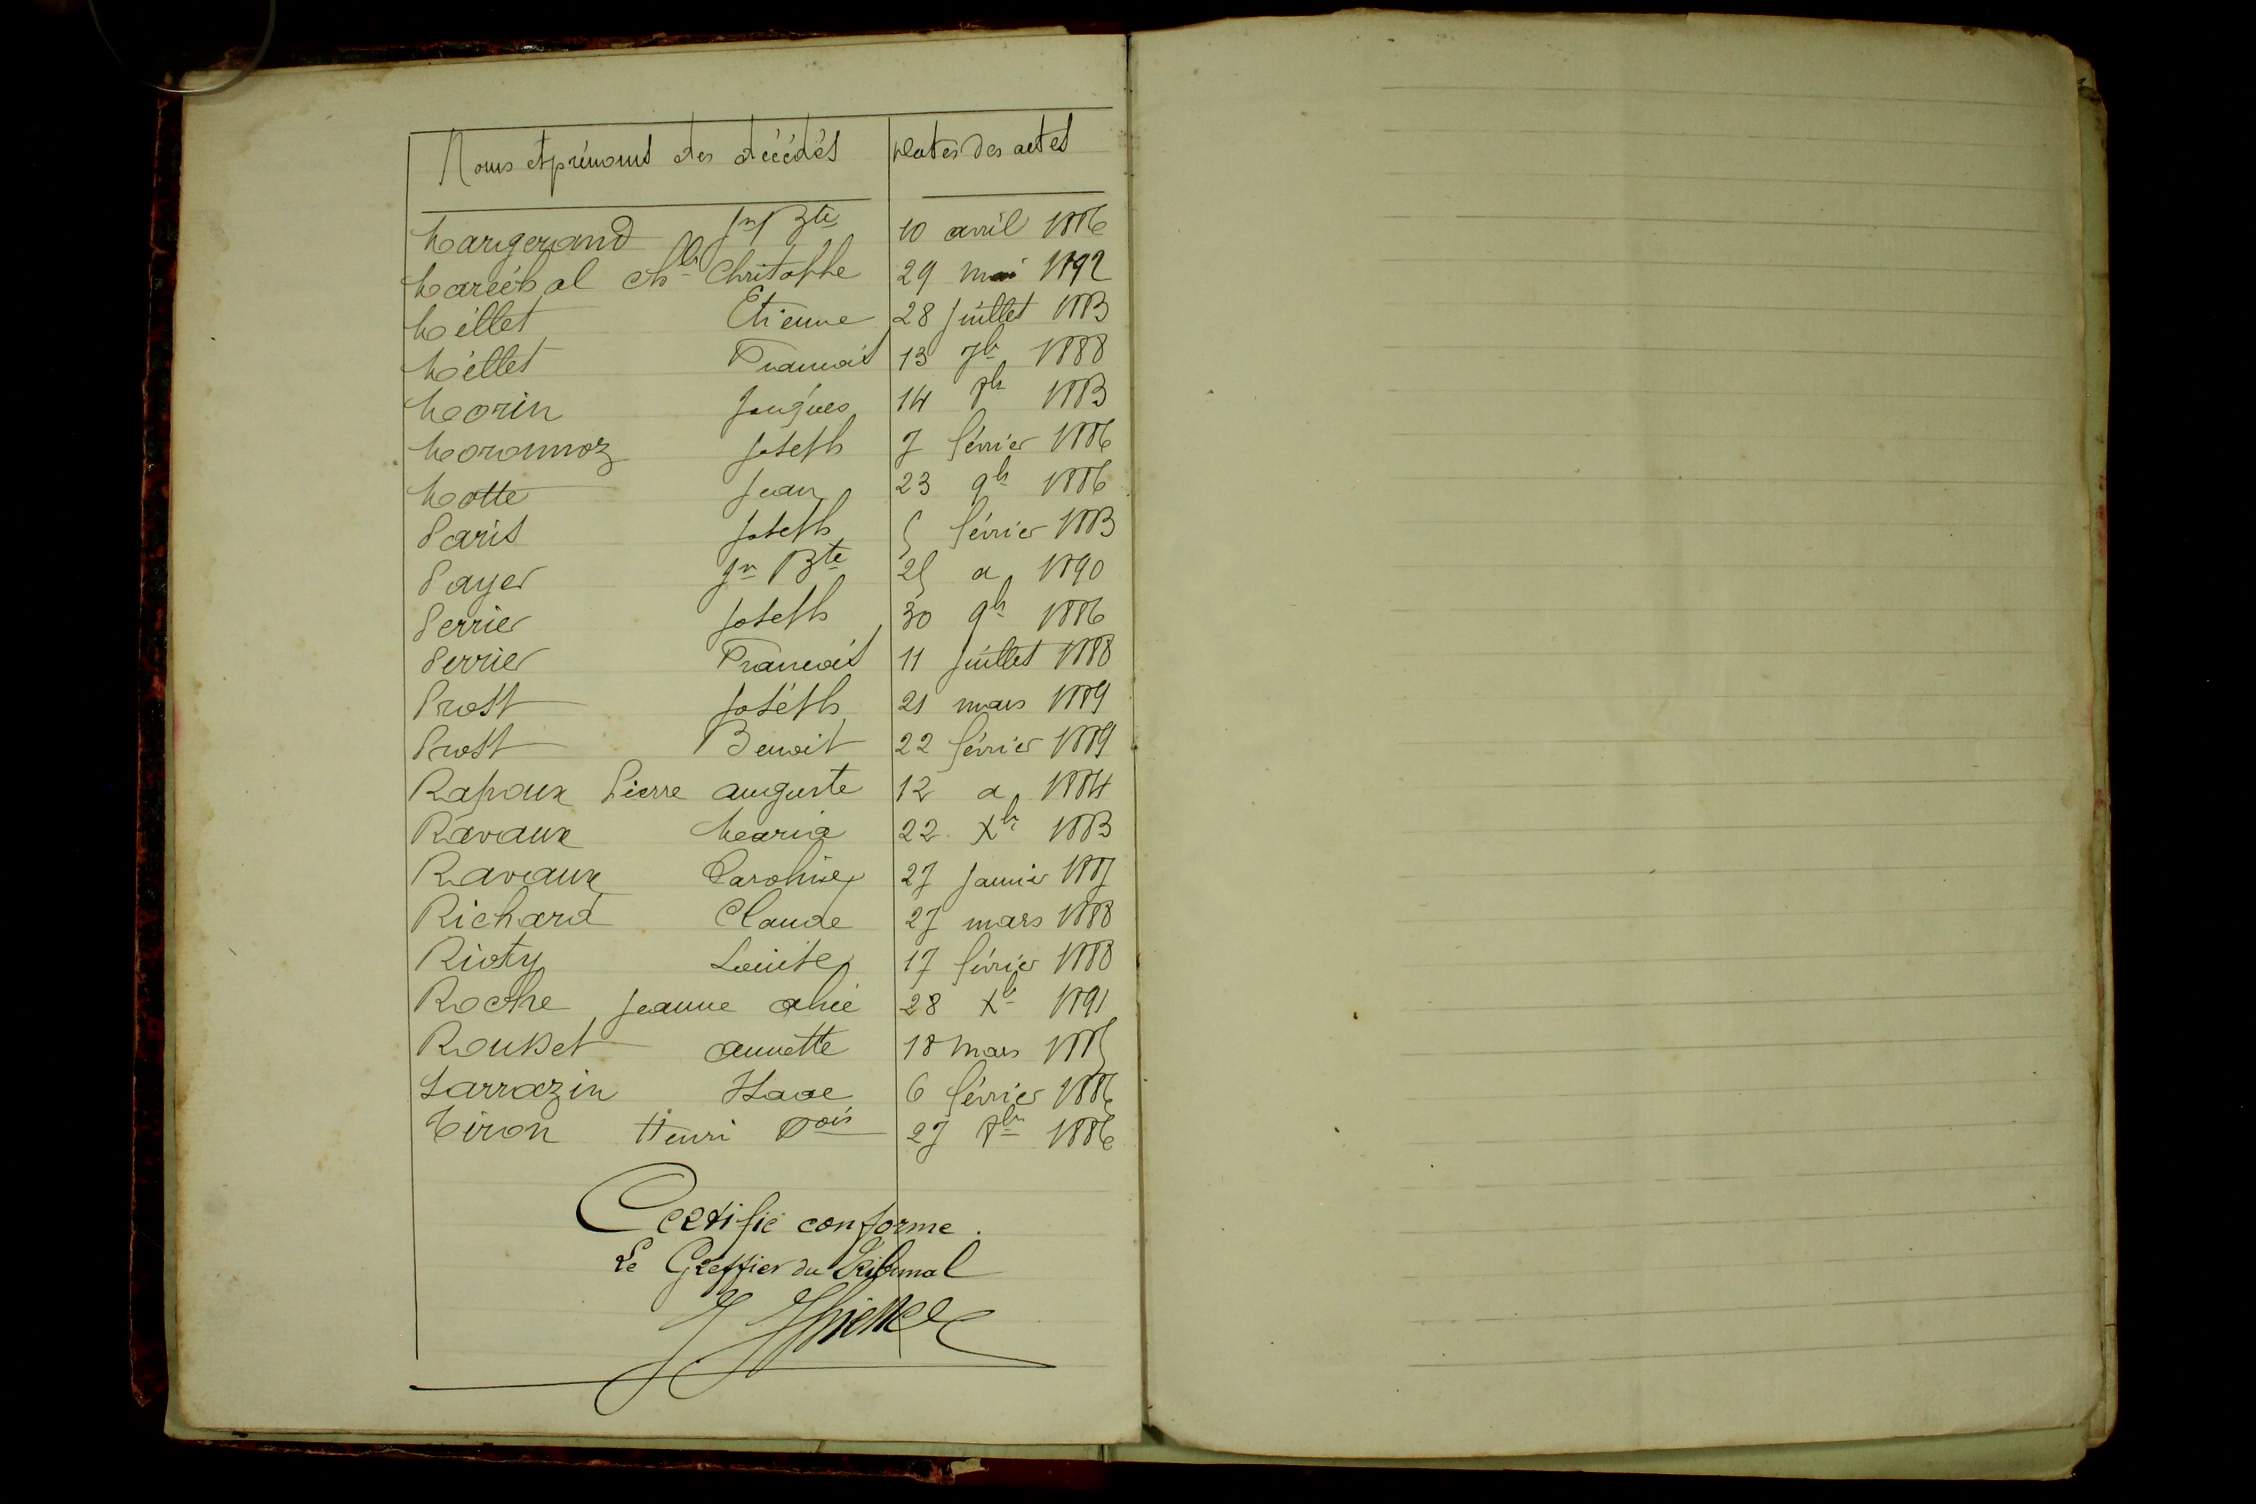 Noms et prénoms des décédés dates des actes
Margerand Jn Bte 10 avril 1886
Maréchal Christophe 29 mai 1892
Millet Etienne 28 juillet 1883
Millet Francois 13 7b 1888
Morin Jacques 14 8b 1883
Moronnoz Joseph 7 février 1886
Motte Jean 23 9b 1886
Paris Joseph 5 février 1883
Payer Jn Bte 25 a 1890
Perrier Joseph 30 9b 1886
Perrier Francois 11 juillet 1888
Prost Joséph 21 mars 1889
Prost Benoit 22 février 1889
Rapoux Pierre auguste 12 a 1884
Ravaux Maria 22 Xbr 1883
Ravaux Caroline 27 janvier 1887
Richard Claude 27 mars 1888
Rioty Louise 17 février 1888
Roche Jeanne alice 28 Xb 1891
Rousset annette 18 mars 1885
Sarrazin Isaac 6 février 1886
Tiron Henri Fois 27 8br 1886
Certifié conforme.
Le Greffier du Tribunal